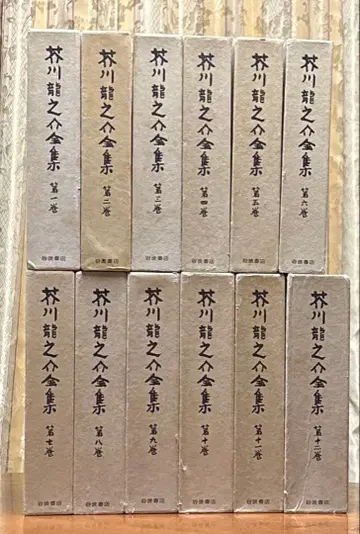 芥川龍之介全集 第一巻 岩波書店
芥川龍之介全集 第二巻 岩波書店
芥川龍之介全集 第三巻 岩波書店
芥川龍之介全集 第四巻 岩波書店
芥川龍之介全集 第五巻 岩波書店
芥川龍之介全集 第六巻 岩波書店
芥川龍之介全集 第七巻 岩波書店
芥川龍之介全集 第八巻 岩波書店
芥川龍之介全集 第九巻 岩波書店
芥川龍之介全集 第十巻 岩波書店
芥川龍之介全集 第十一巻 岩波書店
芥川龍之介全集 第十二巻 岩波書店